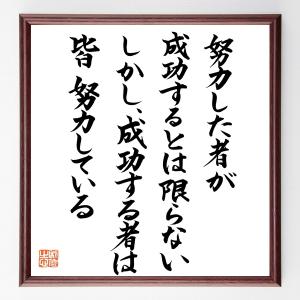 努力した者が
成功するとは限らない
しかし、成功する者は
皆 努力している